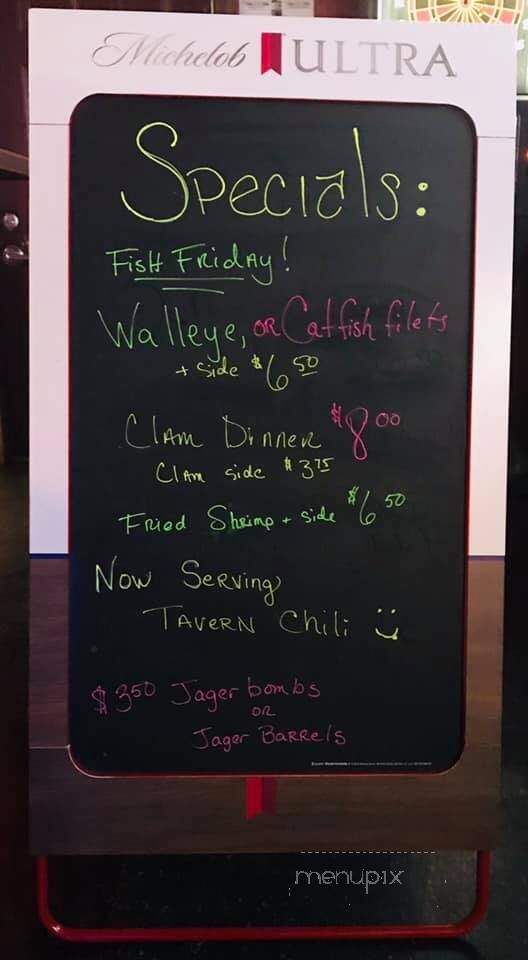 Michelob ULTRA
Specials:
Fish Friday!
Walleye, or Catfish filets
+ side $6 50
Clam Dinner $8 00
Clam side $3 75
Fried Shrimp + side $6 50
Now Serving
Tavern Chili
$3 50 Jager bombs
or
Jager Barrels
menupix